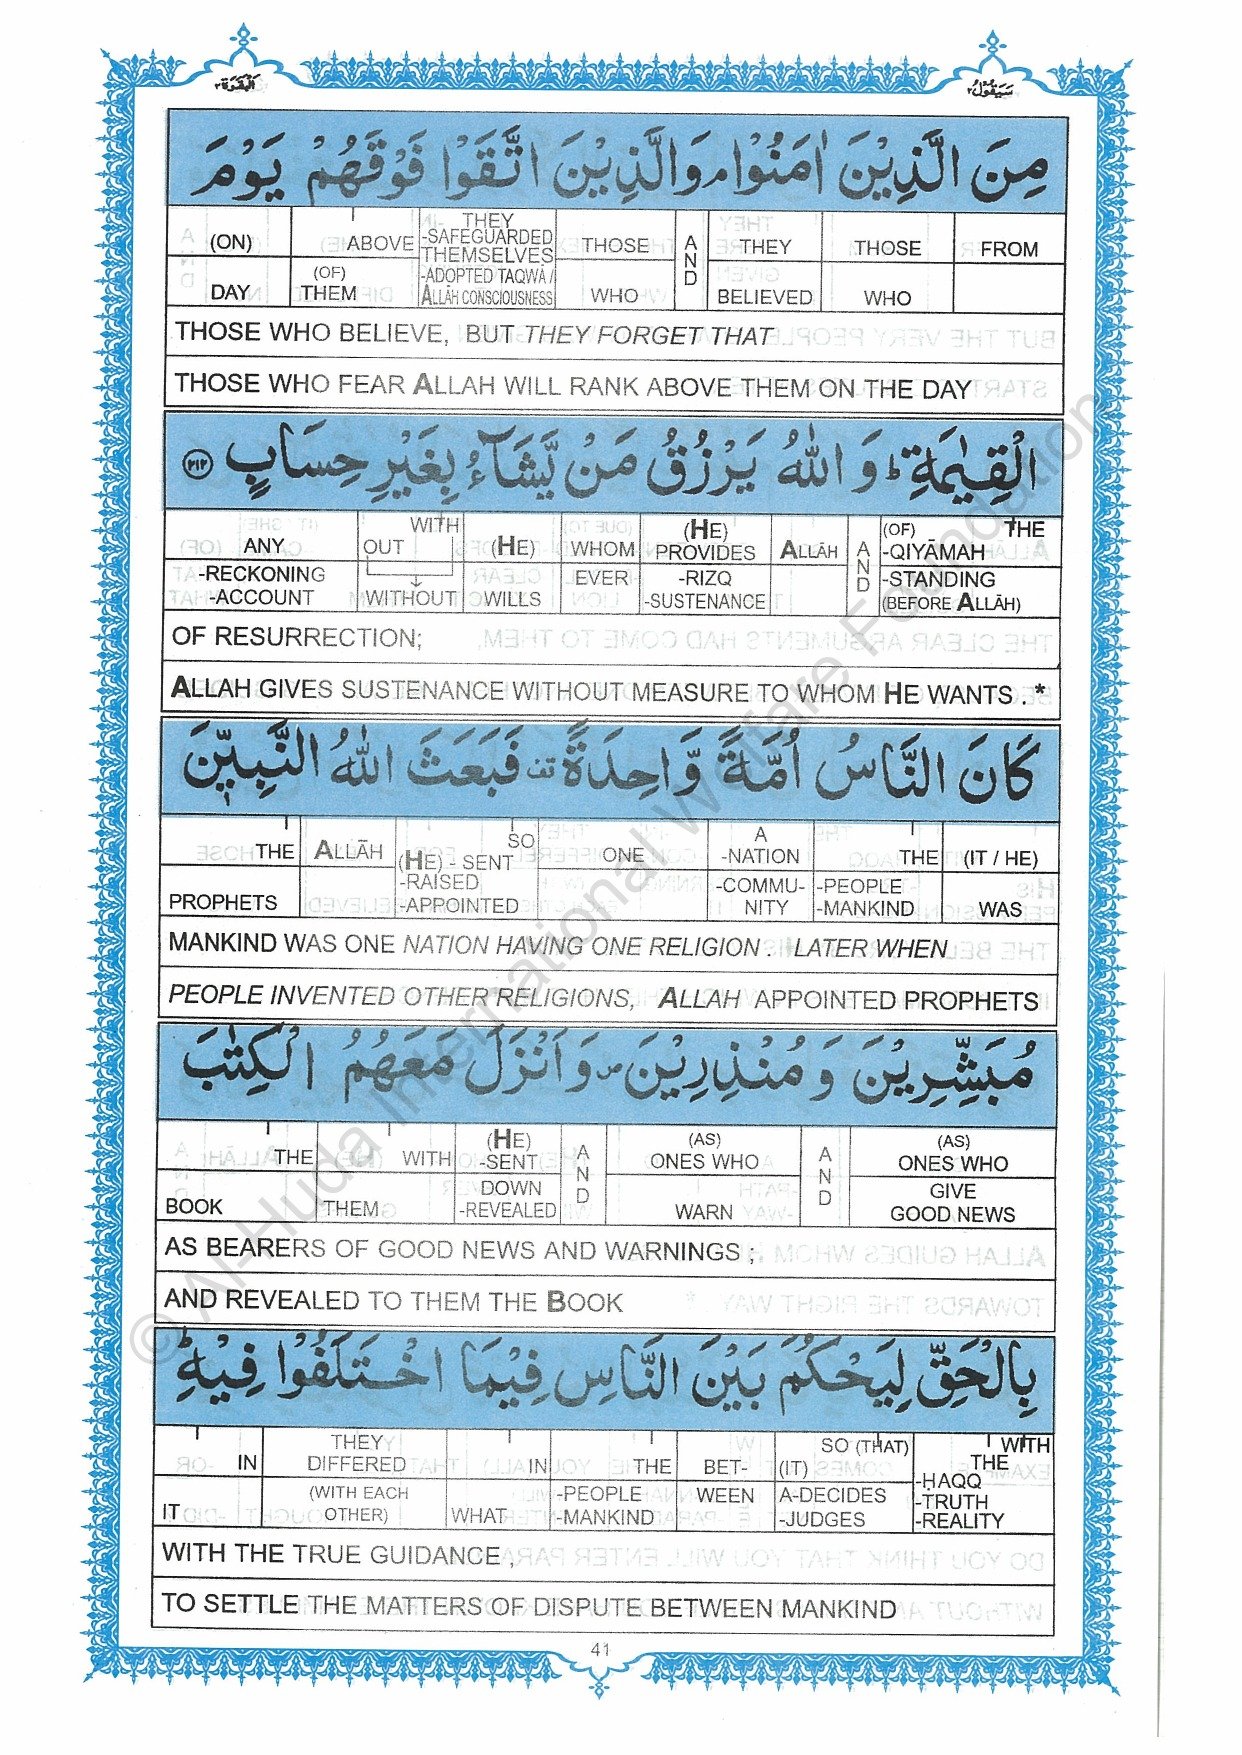 البقرة ٢
سيقول ٢
مِنَ الَّذِيْنَ اٰمَنُوْا ۘ وَالَّذِيْنَ اتَّقَوْا فَوْقَهُمْ يَوْمَ
(ON) DAY | ABOVE (OF) THEM | THEY -SAFEGUARDED THEMSELVES -ADOPTED TAQWĀ / ALLĀH CONSCIOUSNESS | THOSE WHO | AND | THEY BELIEVED | THOSE WHO | FROM
THOSE WHO BELIEVE, BUT THEY FORGET THAT
THOSE WHO FEAR ALLAH WILL RANK ABOVE THEM ON THE DAY
الْقِيٰمَةِ ؕ وَ اللّٰهُ يَرْزُقُ مَنْ يَّشَآءُ بِغَيْرِ حِسَابٍ ﴿۲۱۲﴾
ANY -RECKONING -ACCOUNT | WITH OUT WITHOUT | (HE) WILLS | WHOM EVER | (HE) PROVIDES -RIZQ -SUSTENANCE | ALLĀH | AND | (OF) THE -QIYĀMAH -STANDING (BEFORE ALLĀH)
OF RESURRECTION;
ALLAH GIVES SUSTENANCE WITHOUT MEASURE TO WHOM HE WANTS . *
كَانَ النَّاسُ اُمَّةً وَّاحِدَةً قف فَبَعَثَ اللّٰهُ النَّبِيّٖنَ
THE PROPHETS | ALLĀH | SO (HE) - SENT -RAISED -APPOINTED | ONE | A -NATION -COMMU- NITY | THE -PEOPLE -MANKIND | (IT / HE) WAS
MANKIND WAS ONE NATION HAVING ONE RELIGION . LATER WHEN
PEOPLE INVENTED OTHER RELIGIONS, ALLAH APPOINTED PROPHETS
مُبَشِّرِيْنَ وَ مُنْذِرِيْنَ ۪ وَ اَنْزَلَ مَعَهُمُ الْكِتٰبَ
THE BOOK | WITH THEM | (HE) -SENT DOWN -REVEALED | AND | (AS) ONES WHO WARN | AND | (AS) ONES WHO GIVE GOOD NEWS
AS BEARERS OF GOOD NEWS AND WARNINGS ;
AND REVEALED TO THEM THE BOOK
بِالْحَقِّ لِيَحْكُمَ بَيْنَ النَّاسِ فِيْمَا اخْتَلَفُوْا فِيْهِ ؕ
IN IT | THEY DIFFERED (WITH EACH OTHER) | IN WHAT | THE -PEOPLE -MANKIND | BET- WEEN | SO (THAT) (IT) A-DECIDES -JUDGES | WITH THE -ḤAQQ -TRUTH -REALITY
WITH THE TRUE GUIDANCE ,
TO SETTLE THE MATTERS OF DISPUTE BETWEEN MANKIND
41
© Al-Huda International Welfare Foundation